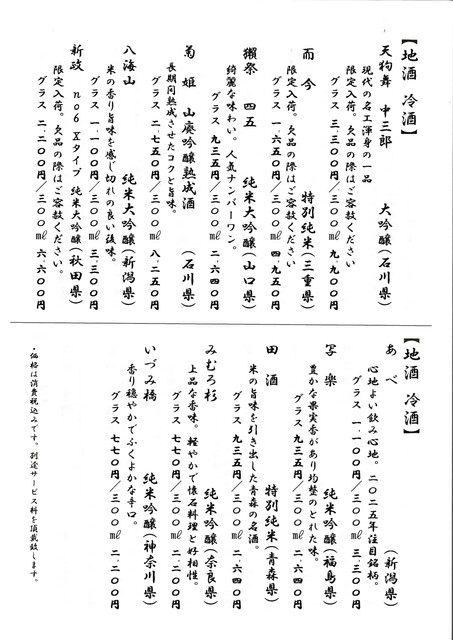 【地酒 冷酒】
天狗舞 中三郎 大吟醸(石川県)
現代の名工渾身の一品
限定入荷。欠品の際はご容赦ください
グラス 三、三〇〇円/三〇〇㎖ 九、九〇〇円
而今 特別純米(三重県)
限定入荷。欠品の際はご容赦ください
グラス 一、六五〇円/三〇〇㎖ 四、九五〇円
獺祭 四五 純米大吟醸(山口県)
綺麗な味わい。人気ナンバーワン。
グラス 九三五円/三〇〇㎖ 二、六四〇円
菊姫 山廃吟醸熟成酒 (石川県)
長期間熟成させたコクと旨味。
グラス 二、七五〇円/三〇〇㎖ 八、二五〇円
八海山 純米大吟醸(新潟県)
米の香り旨味を感じ切れの良い後味。
グラス 一、一〇〇円/三〇〇㎖ 三、三〇〇円
新政 no6 Xタイプ 純米大吟醸(秋田県)
限定入荷。欠品の際はご容赦ください。
グラス 二、二〇〇円/三〇〇㎖ 六、六〇〇円
【地酒 冷酒】
あべ (新潟県)
心地よい飲み心地。二〇二五年注目銘柄。
グラス 一、一〇〇円/三〇〇㎖ 三、三〇〇円
写楽 純米吟醸(福島県)
豊かな果実香があり均整のとれた味。
グラス 九三五円/三〇〇㎖ 二、六四〇円
田酒 特別純米(青森県)
米の旨味を引き出した青森の名酒。
グラス 九三五円/三〇〇㎖ 二、六四〇円
みむろ杉 純米吟醸(奈良県)
上品な香味。軽やかで懐石料理と好相性。
グラス 七七〇円/三〇〇㎖ 二、二〇〇円
いづみ橋 純米吟醸(神奈川県)
香り穏やかでふくよかな辛口。
グラス 七七〇円/三〇〇㎖ 二、二〇〇円
・価格は消費税込みです。別途サービス料を頂戴致します。